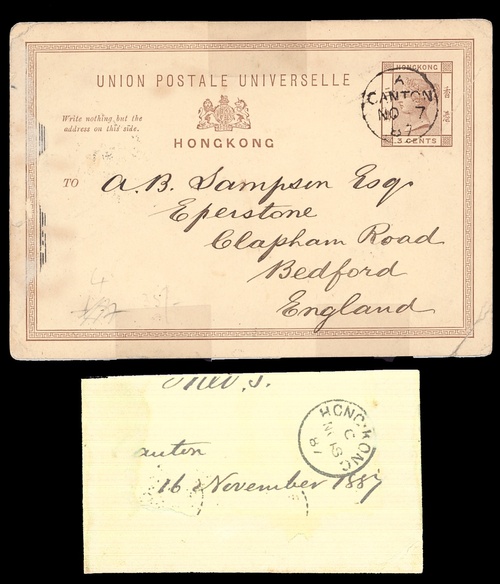 UNION POSTALE UNIVERSELLE
HONGKONG
A
CANTON
NO 7
87
3 CENTS
Write nothing but the
address on this side.
HONGKONG
TO
A.B. Sampson Esq.
Eperstone
Clapham Road
Bedford
England
4
HONG-KONG
C
NO
87
anton
16 November 1887